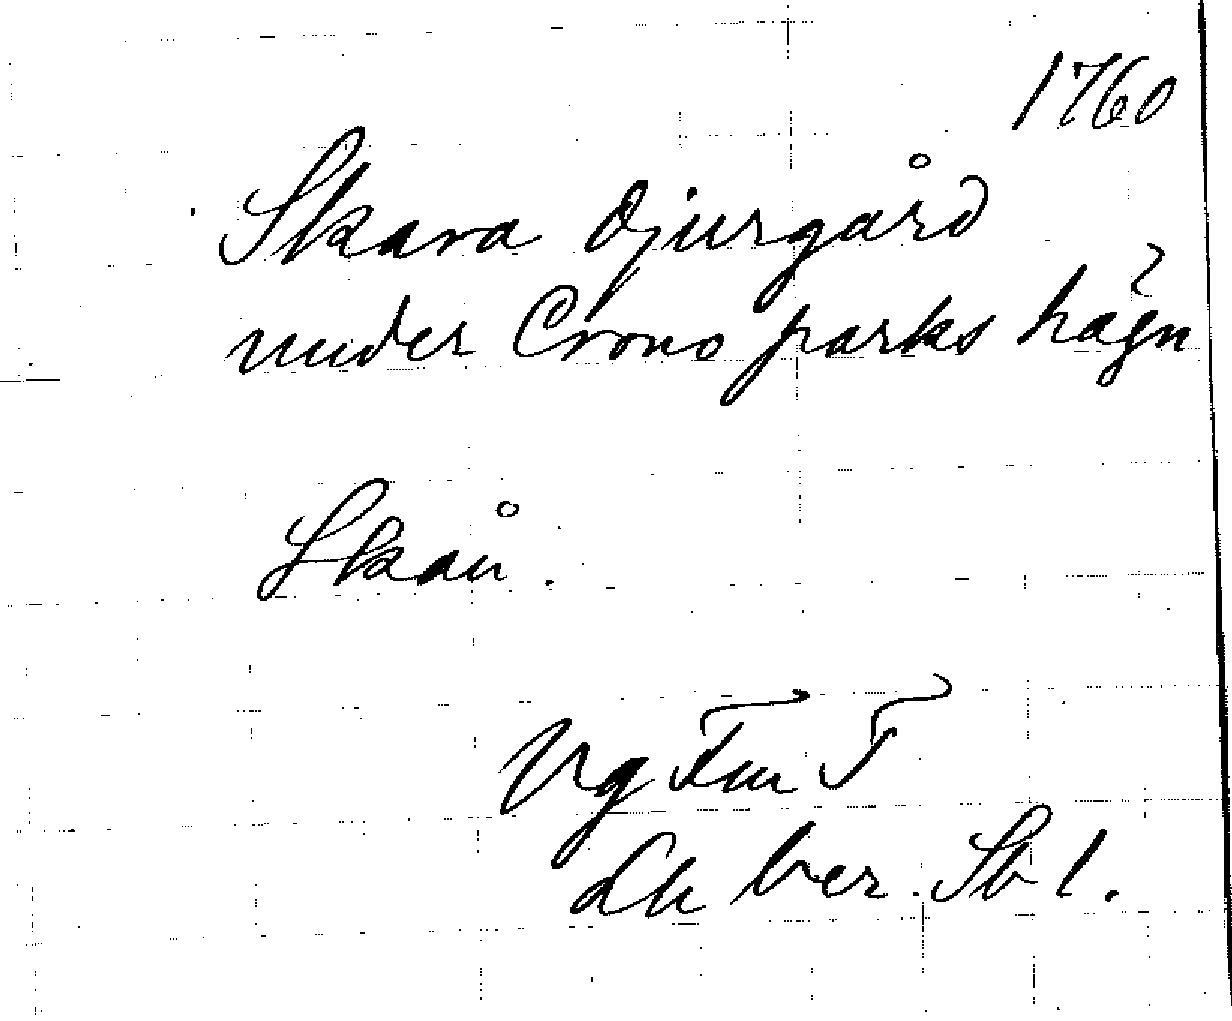 1760
Skara Djurgård
under Crono parks hägn
Skån.
Vg Fm T
Lk ber. Sb 1.